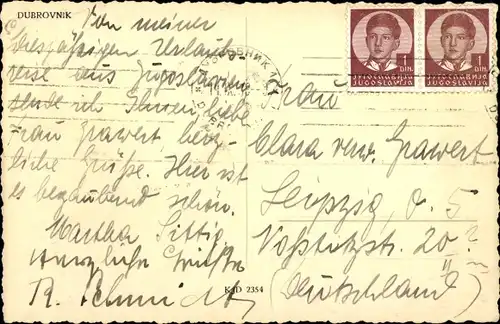 DUBROVNIK
Von meiner
diesjährigen Urlaubs-
reise aus Jugoslawien
sende ich Ihnen, liebe
Frau Grawert herz-
liche Grüße. Hier ist
es bezaubernd schön.
Martha Sittig
Herzliche Grüße
R. Schmidt
K•D 2354
1 ДИН.
1 DIN.
ЈУГОСЛАВИЈА
JUGOSLAVIJA
ЈУГОСЛАВИЈА
JUGOSLAVIJA
Frau
Clara verw. Grawert
Leipzig, O. 5
20 II
(Deutschland)